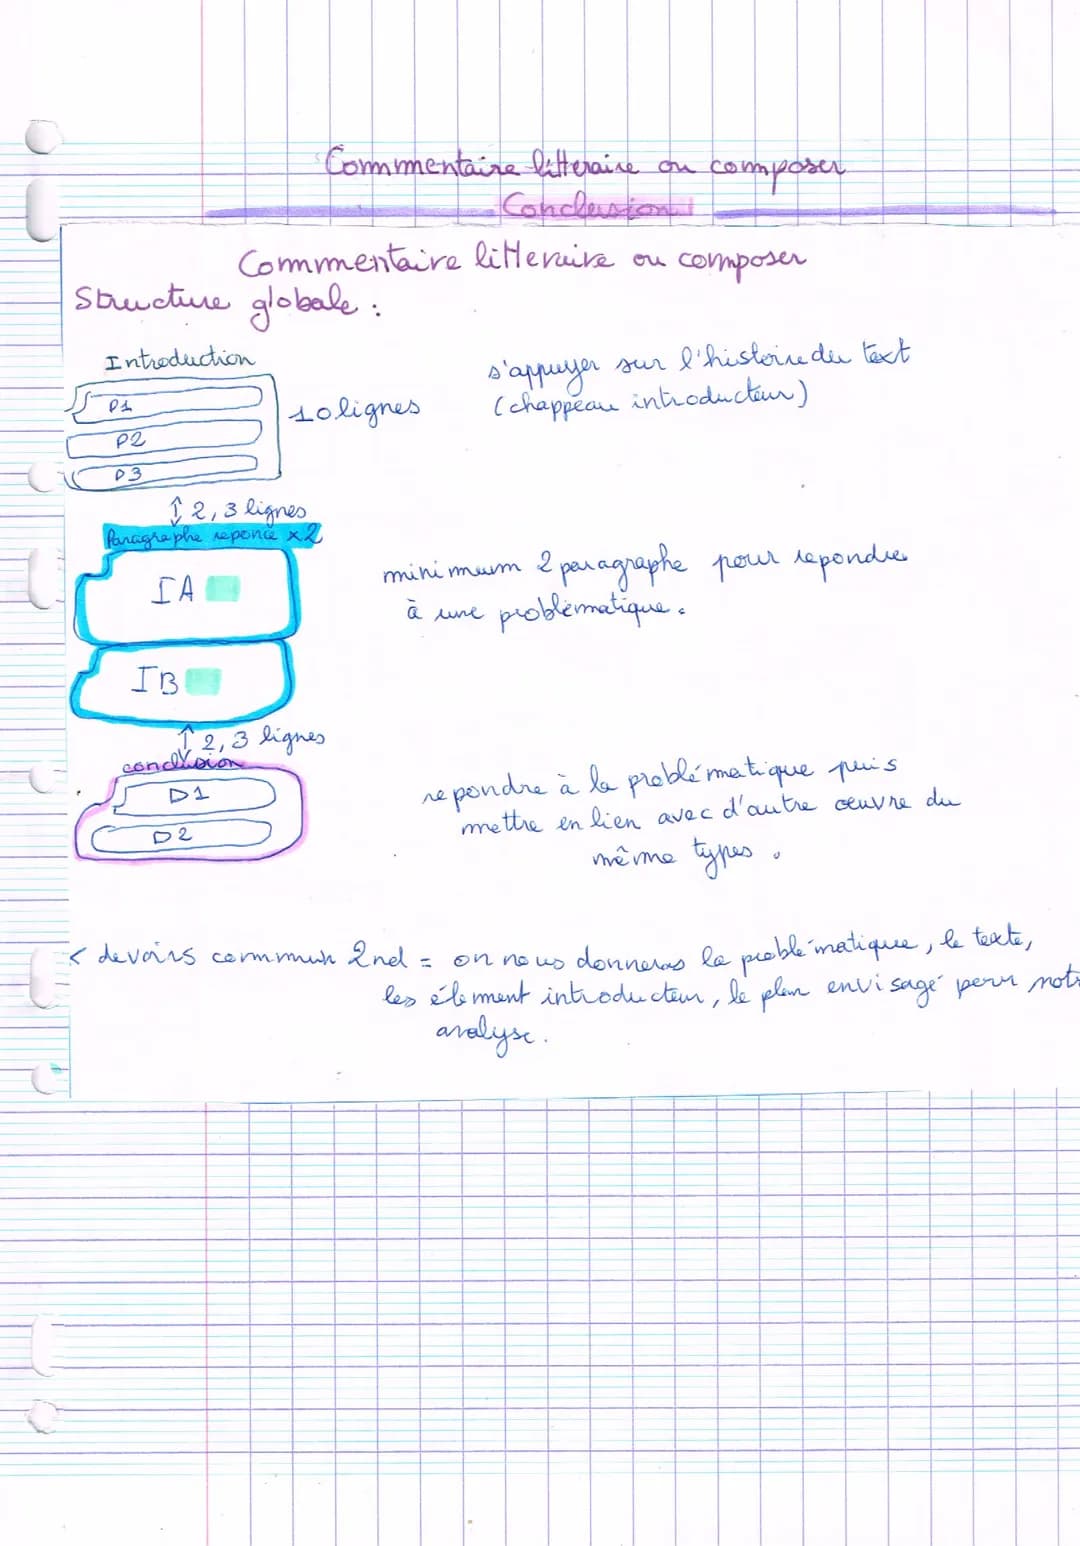 Commmentaire litteraire ou composer
Conclusion
Commmentaire litteraire ou composer
Structure globale :
Introduction
P1
P2
P3
10 lignes
s'appuyer sur l'histoire du text
(chappeau introducteur)
↕ 2, 3 lignes
Paragraphe reponce x2
IA
IB
minimum 2 paragraphe pour repondre
à une problématique.
↕ 2, 3 lignes
conclusion
D1
D2
repondre à la problématique puis
mettre en lien avec d'autre œuvre du
même types.
< devoirs commun 2nd = on nous donneras la problématique, le texte,
les élément introducteur, le plan envisagé pour
analyse.